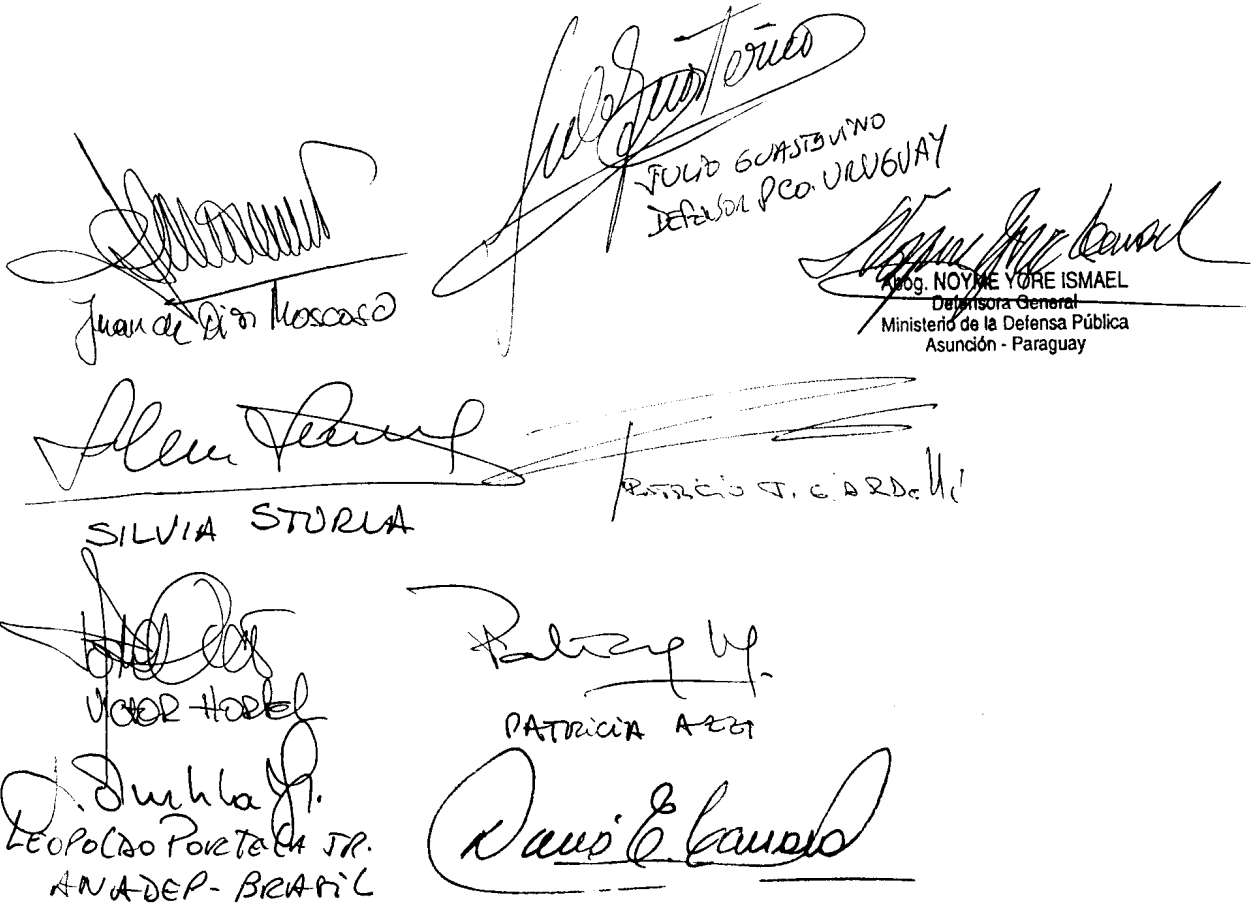 Juan de Dios Moscoso
JULIO GUASTAVINO
DEFENSOR PCO. URUGUAY
Abog. NOYME YORE ISMAEL
Defensora General
Ministerio de la Defensa Pública
Asunción - Paraguay
SILVIA STURLA
PATRICIO J. GIARDELLI
VICTOR HORTEL
PATRICIA AZZI
LEOPOLDO PORTELA JR.
ANADEP - BRASIL